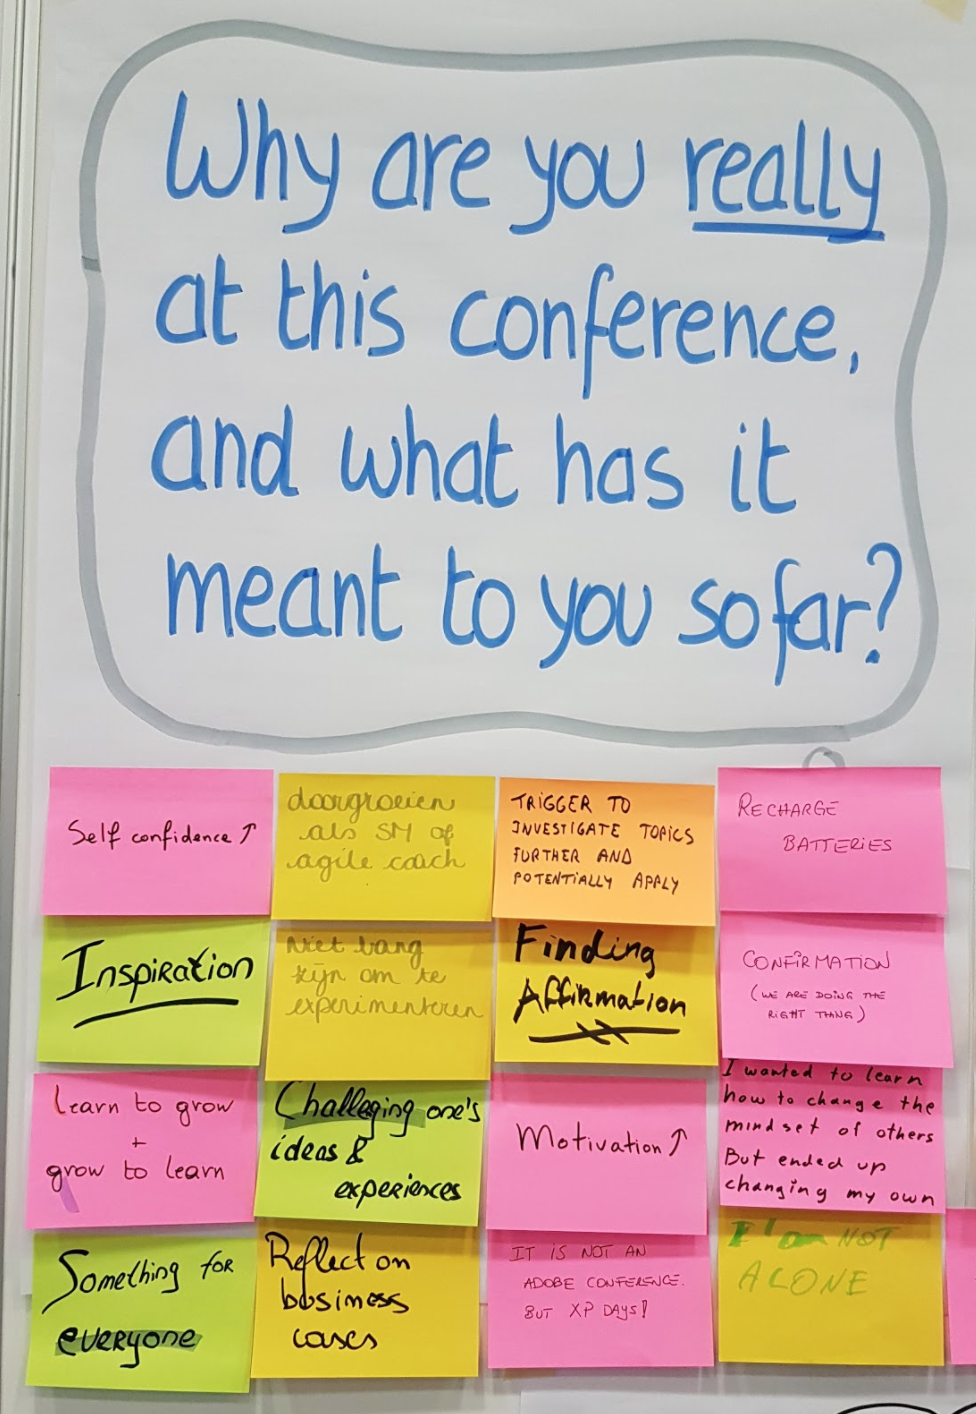 Why are you really
at this conference,
and what has it
meant to you so far?
Self confidence ↑
doorgroeien
als SM of
agile coach
TRIGGER TO
INVESTIGATE TOPICS
FURTHER AND
POTENTIALLY APPLY
RECHARGE
BATTERIES
Inspiration
Niet bang
zijn om te
experimenteren
Finding
Affirmation
CONFIRMATION
(WE ARE DOING THE
RIGHT THANG)
learn to grow
+
grow to learn
Challeging one's
ideas &
experiences
Motivation ↑
I wanted to learn
how to change the
mindset of others
But ended up
changing my own
Something for
everyone
Reflect on
business
cases
IT IS NOT AN
ADOBE CONFERENCE.
BUT XP DAYS!
I'm NOT
ALONE